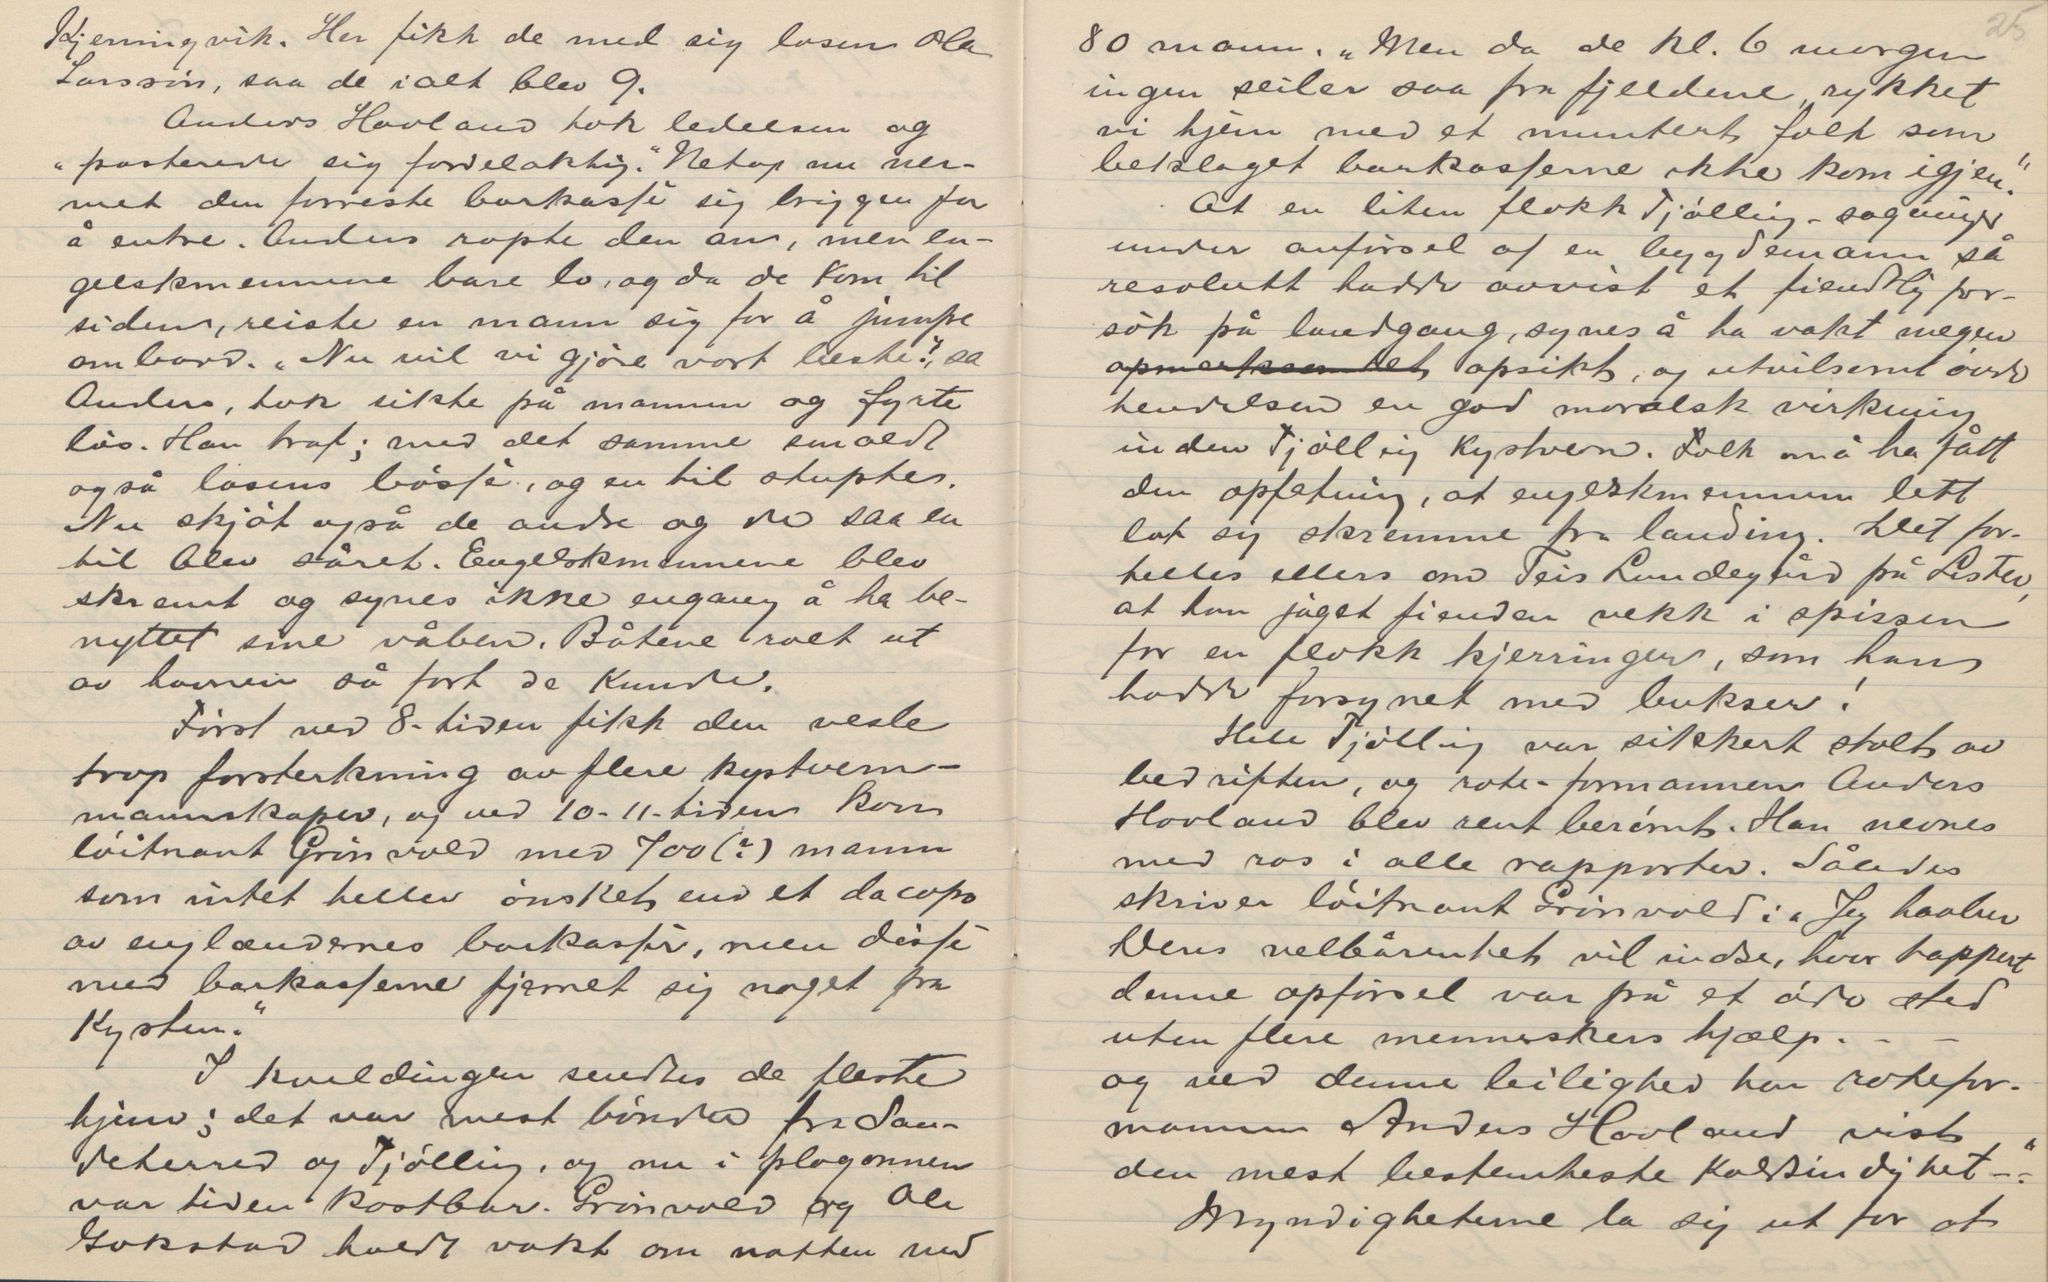 Kjerringvik. Her fikk de med sig losen Ola
Larssøn, saa de i alt blev 9.
Anders Hovland tok ledelsen og
„posterede sig fordelaktig.“ Netop nu ner-
met den forreste barkasse sig briggen for
å entre. Anders ropte den an, men en-
gelskmennene bare lo, og da de kom til
siden, reiste en mann sig for å jumpe
ombord. „Nu vil vi gjøre vort beste“, sa
Anders, tok sikte på mannen og fyrte
løs. Han traf; med det samme smaldt
også losens bøsse, og en til stuptes.
Nu skjøt også de andre og de saa en
til blev såret. Engelskmennene blev
skremt og synes ikke engang å ha be-
nyttet sine våben. Båtene roet ut
av havnen så fort de kunde.
Først ved 8-tiden fikk den vesle
trop forsterkning av flere kystvern-
mannskaper, og ved 10-11-tiden kom
løitnant Grønvold med 700(?) mann
som intet heller ønsket end et dacapo
av englændernes barkasse, men disse
med barkasserne fjernet sig noget fra
Kysten.“
I kveldingen sendtes de fleste
hjem; det var mest bønder fra San-
deherred og Tjølling, og nu i plogonnen
var tiden kostbar. Grønvold og Ole
Gokstad holdt vakt om natten med
25
80 mann. „Men da de kl. 6 morgen
ingen seiler saa fra fjeldene, rykket
vi hjem med et muntert folk som
beklaget barkasserne ikke kom igjen.“
At en liten flokk Tjølling-sogninger
under anførsel af en bygdemann så
resolutt hadde avvist et fiendtlig for-
søk på landgang, synes å ha vakt megen
opmerksomhet opsikt, og utvilsomt øvde
hendelsen en god moralsk virkning
inden Tjølling Kystvern. Folk må ha fått
den opfatning, at engelskmennene lett
lot sig skremme fra landing. Det for-
telles ellers om Teis Lundegård på Lister,
at han jaget fienden vekk i spissen
for en flokk kjerringer, som han
hadde forsynet med bukser!
Hele Tjølling var sikkert stolt av
bedriften, og rote-formannen Anders
Hovland blev rent berømt. Han nevnes
med ros i alle rapporter. Således
skriver løitnant Grønvold: „Jeg haaber
Deres velbårenhet vil indse, hvor tappert
denne opførsel var på et øde sted
uten flere menneskers hjælp. - -
og ved denne leilighed har rotefor-
mannen Anders Hovland vist
den mest bestemteste Koldsindighet -.“
Myndigheterne la sig ut for at